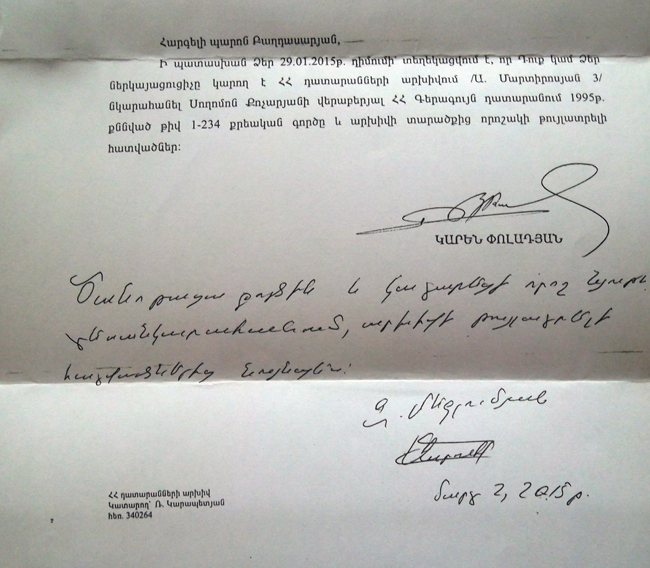 Հարգելի պարոն Բաղդասարյան,
Ի պատասխան Ձեր 29.01.2015թ. դիմումի՝ տեղեկացվում է, որ Դուք կամ Ձեր
ներկայացուցիչը կարող է ՀՀ դատարանների արխիվում /Ա. Մարտիրոսյան 3/
նկարահանել Սողոմոն Քոչարյանի վերաբերյալ ՀՀ Գերագույն դատարանում 1995թ.
քննված թիվ 1-234 քրեական գործը և արխիվի տարածքից որոշակի թույլատրելի
հատվածներ:
ԿԱՐԵՆ ՓՈԼԱԴՅԱՆ
Ծանոթացա գործին և կատարեցի որոշ նյութերի
տեսանկարահանում, արխիվի թույլատրելի
հատվածներից նույնպես:
Գ.
մարտ 2, 2015թ.
ՀՀ դատարանների արխիվ
Կատարող՝ Ռ. Կարապետյան
հեռ. 340264